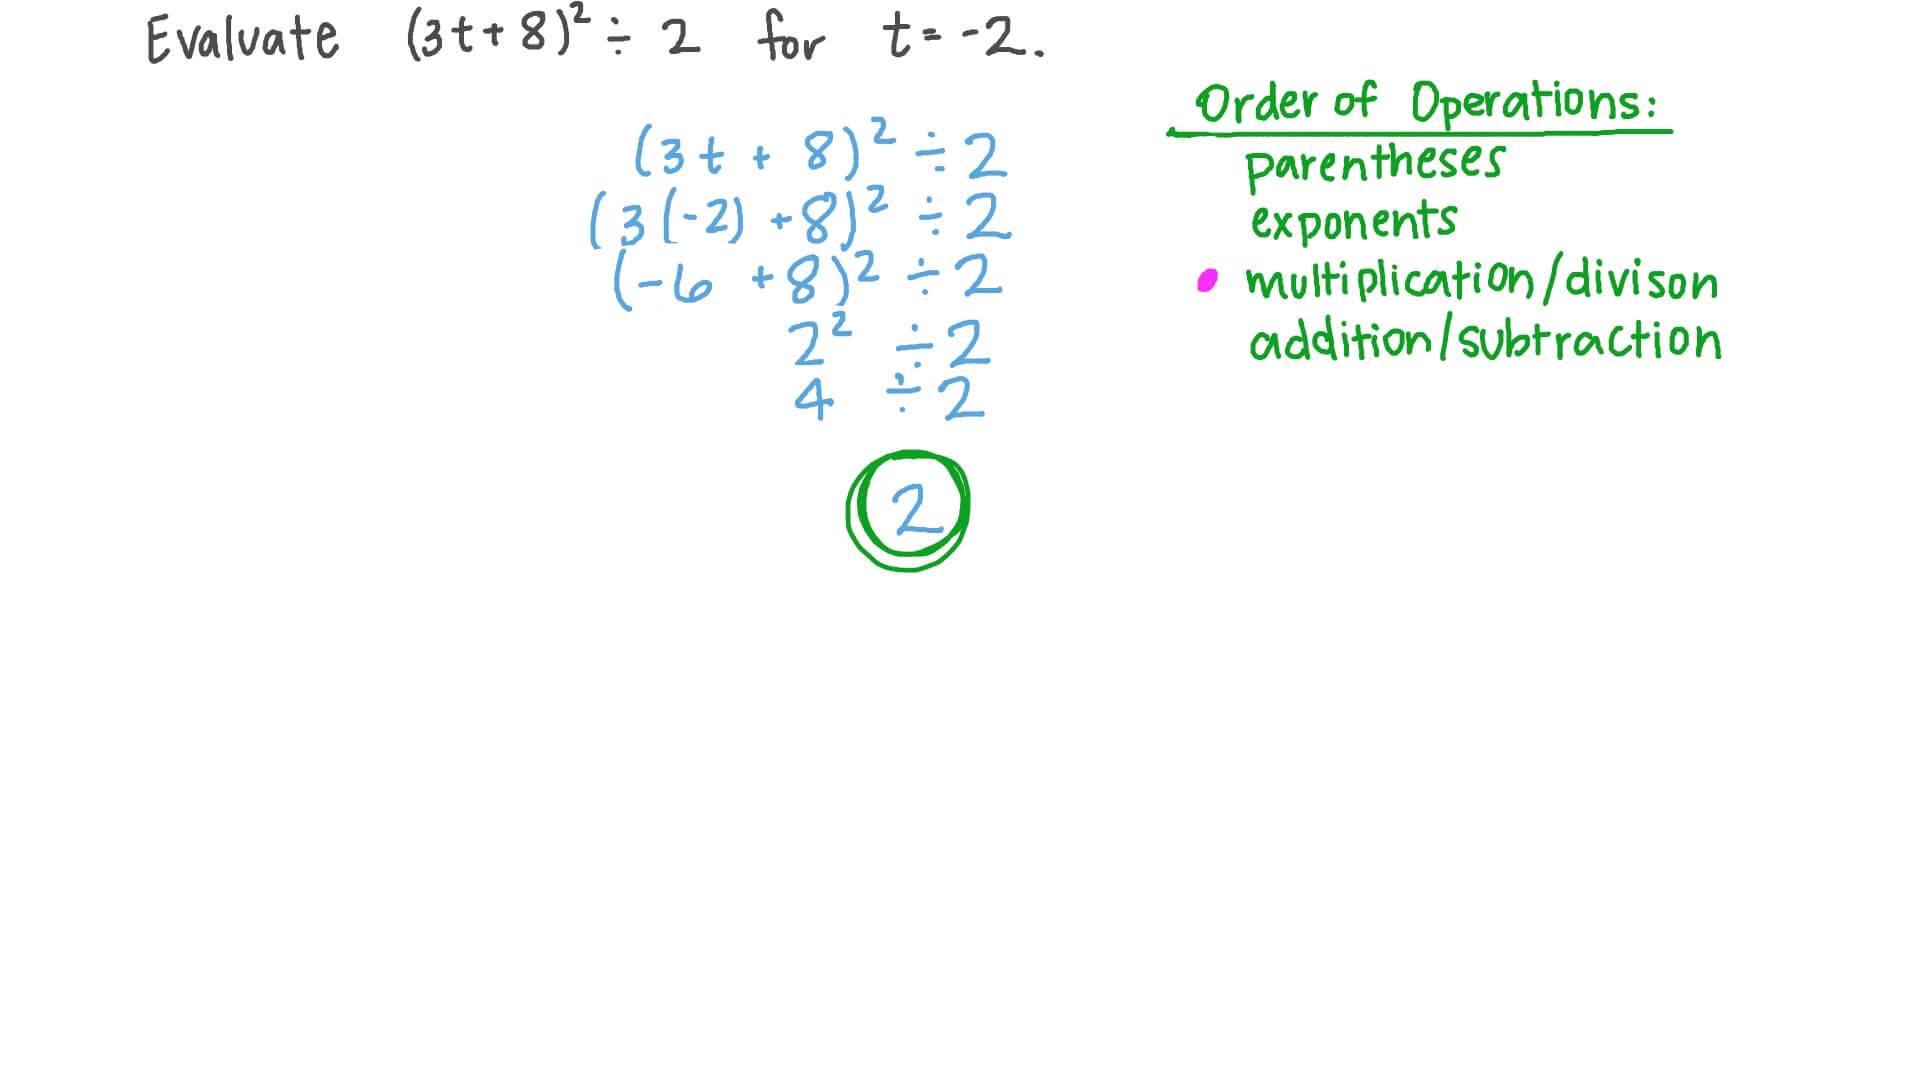 Evaluate (3t+8)² ÷ 2 for t=-2.
(3t + 8)² ÷ 2
(3(-2) +8)² ÷ 2
(-6 +8)² ÷ 2
2² ÷ 2
4 ÷ 2
2
Order of Operations:
parentheses
exponents
multiplication/divison
addition/subtraction